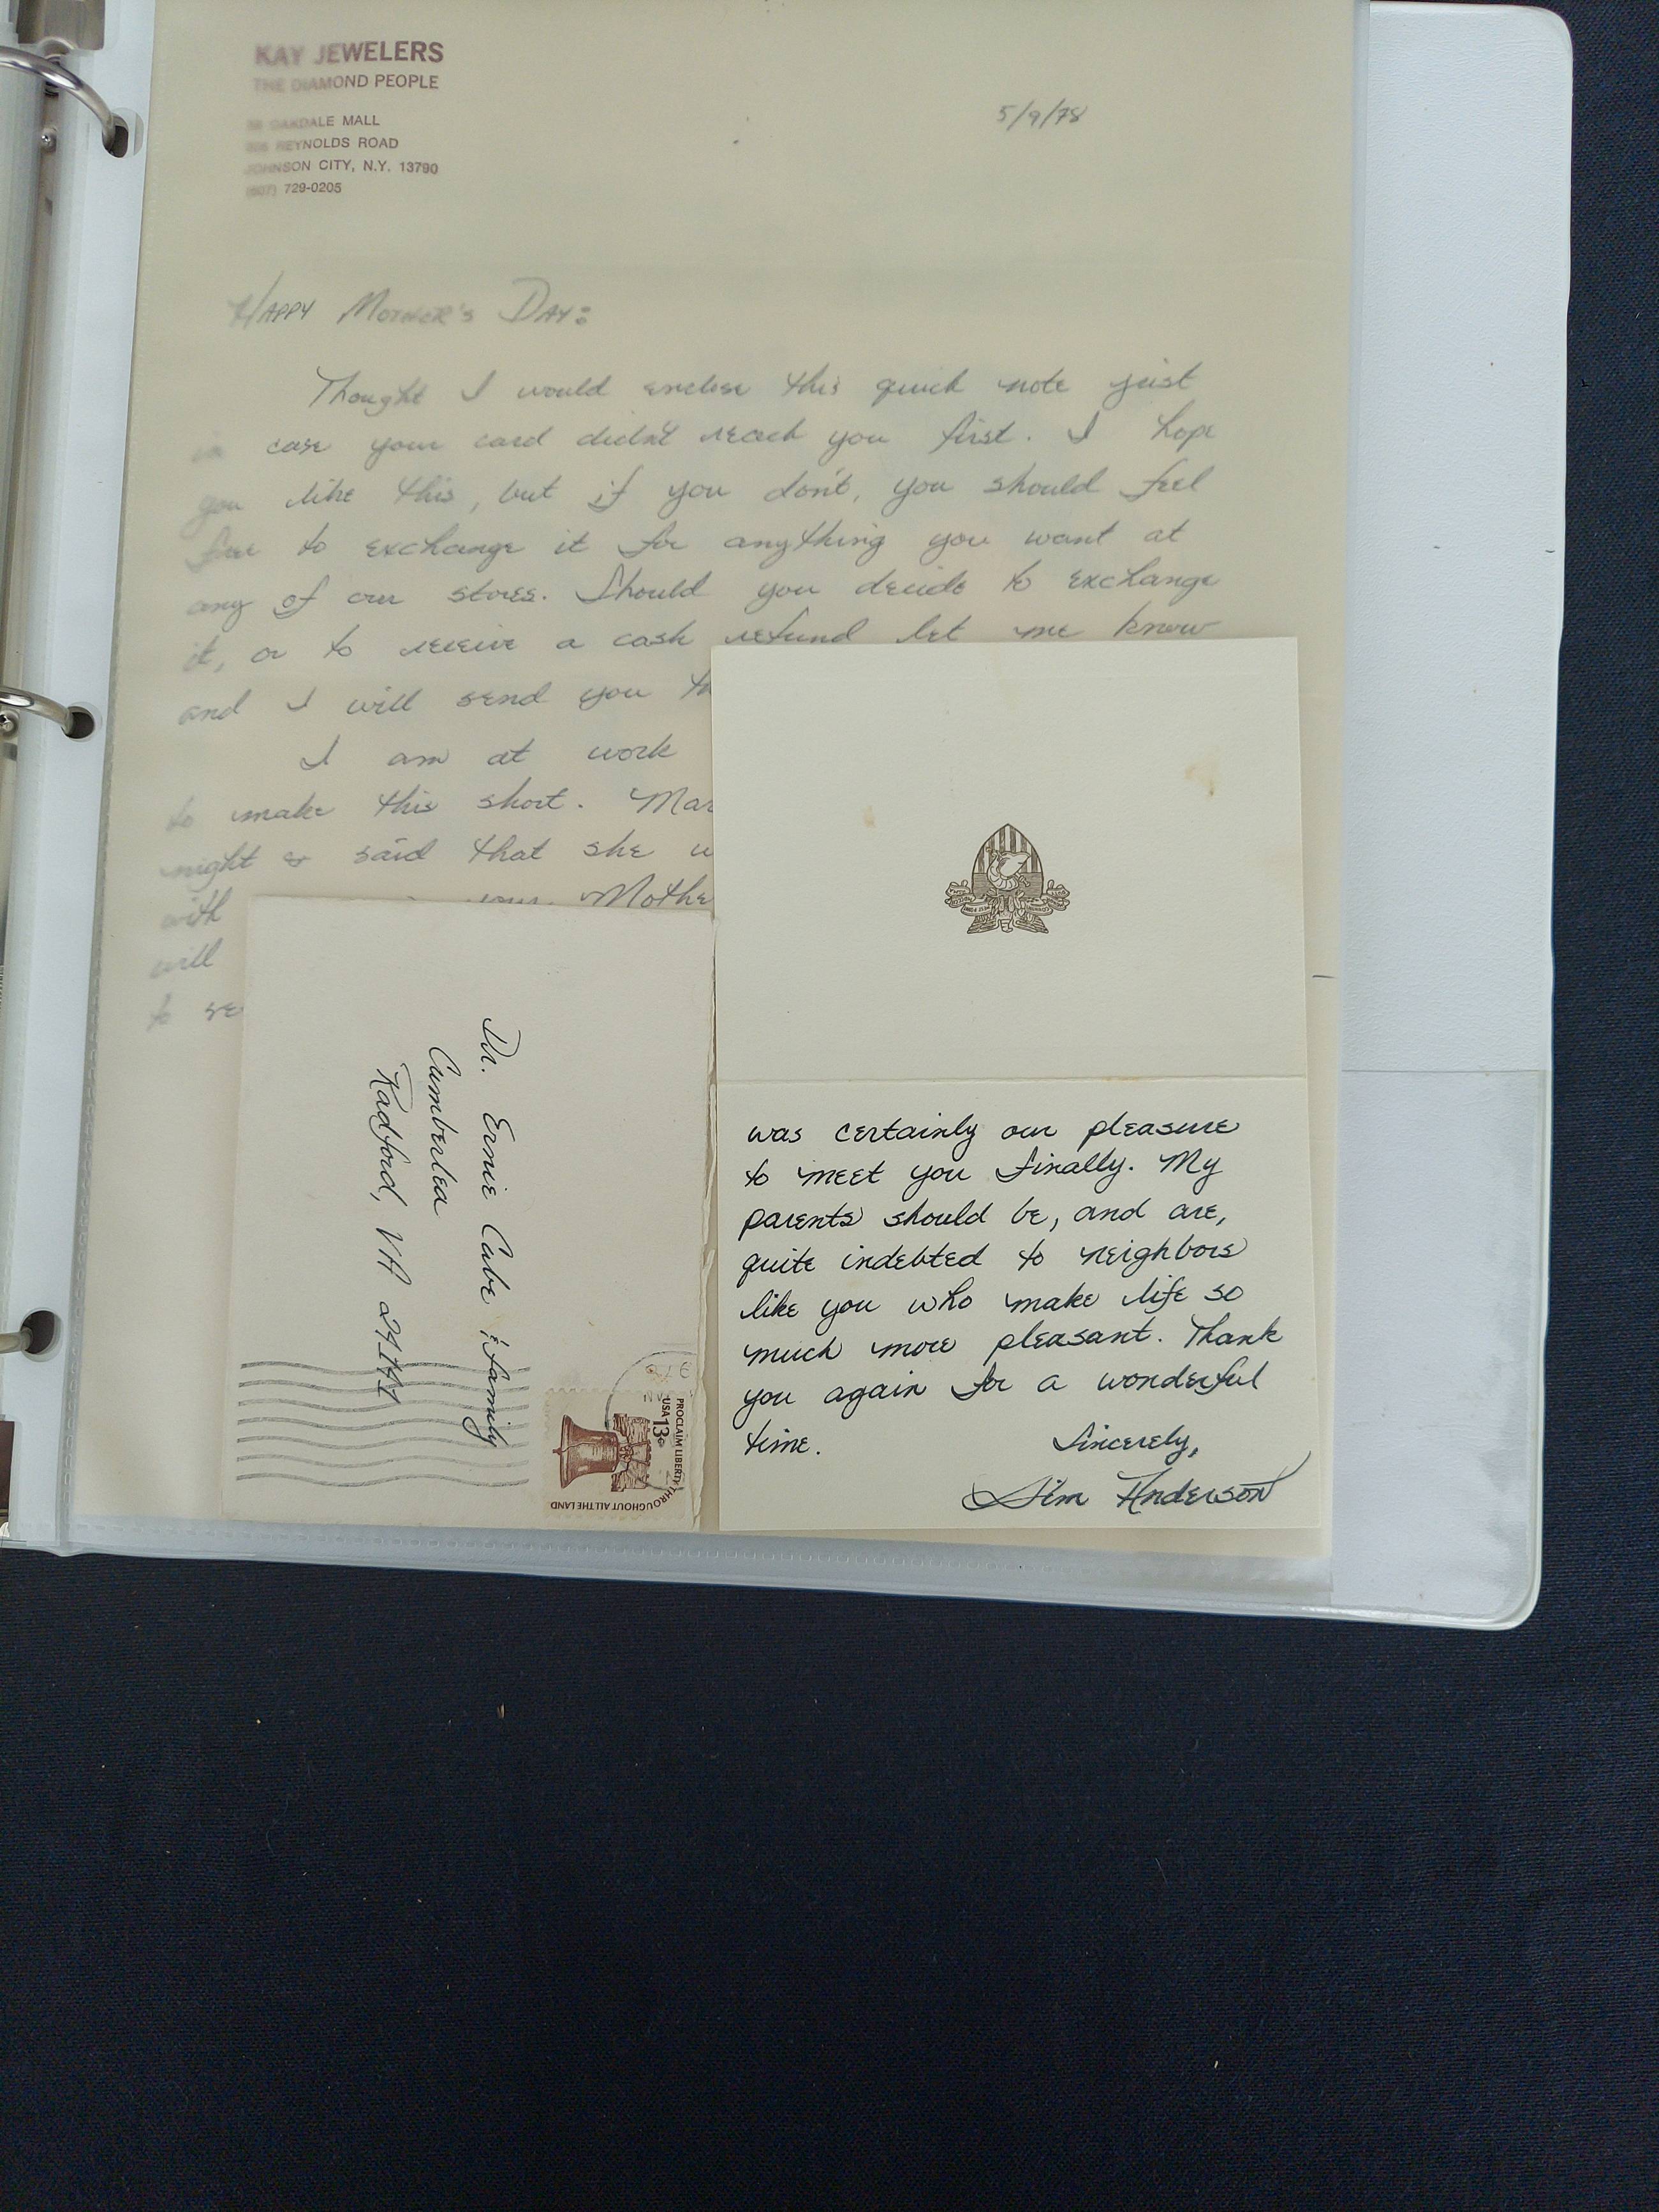 KAY JEWELERS
THE DIAMOND PEOPLE
OAKDALE MALL
REYNOLDS ROAD
JOHNSON CITY, N.Y. 13790
(607) 729-0205
5/9/78
HAPPY MOTHER'S DAY:
Thought I would enclose this quick note just
in case your card didn't reach you first. I hope
you like this, but if you don't, you should feel
free to exchange it for anything you want at
any of our stores. Should you decide to exchange
it, or to receive a cash refund let me know
and I will send you th
I am at work
to make this short. Mar
night & said that she w
with your Mothe
will
to se
Dr. Ernie Cabe & family
Cumberlea
Radford, VA 24141
PROCLAIM LIBERTY THROUGHOUT ALL THE LAND
USA 13c
was certainly our pleasure
to meet you finally. My
parents should be, and are,
quite indebted to neighbors
like you who make life so
much more pleasant. Thank
you again for a wonderful
time. Sincerely,
Jim Anderson